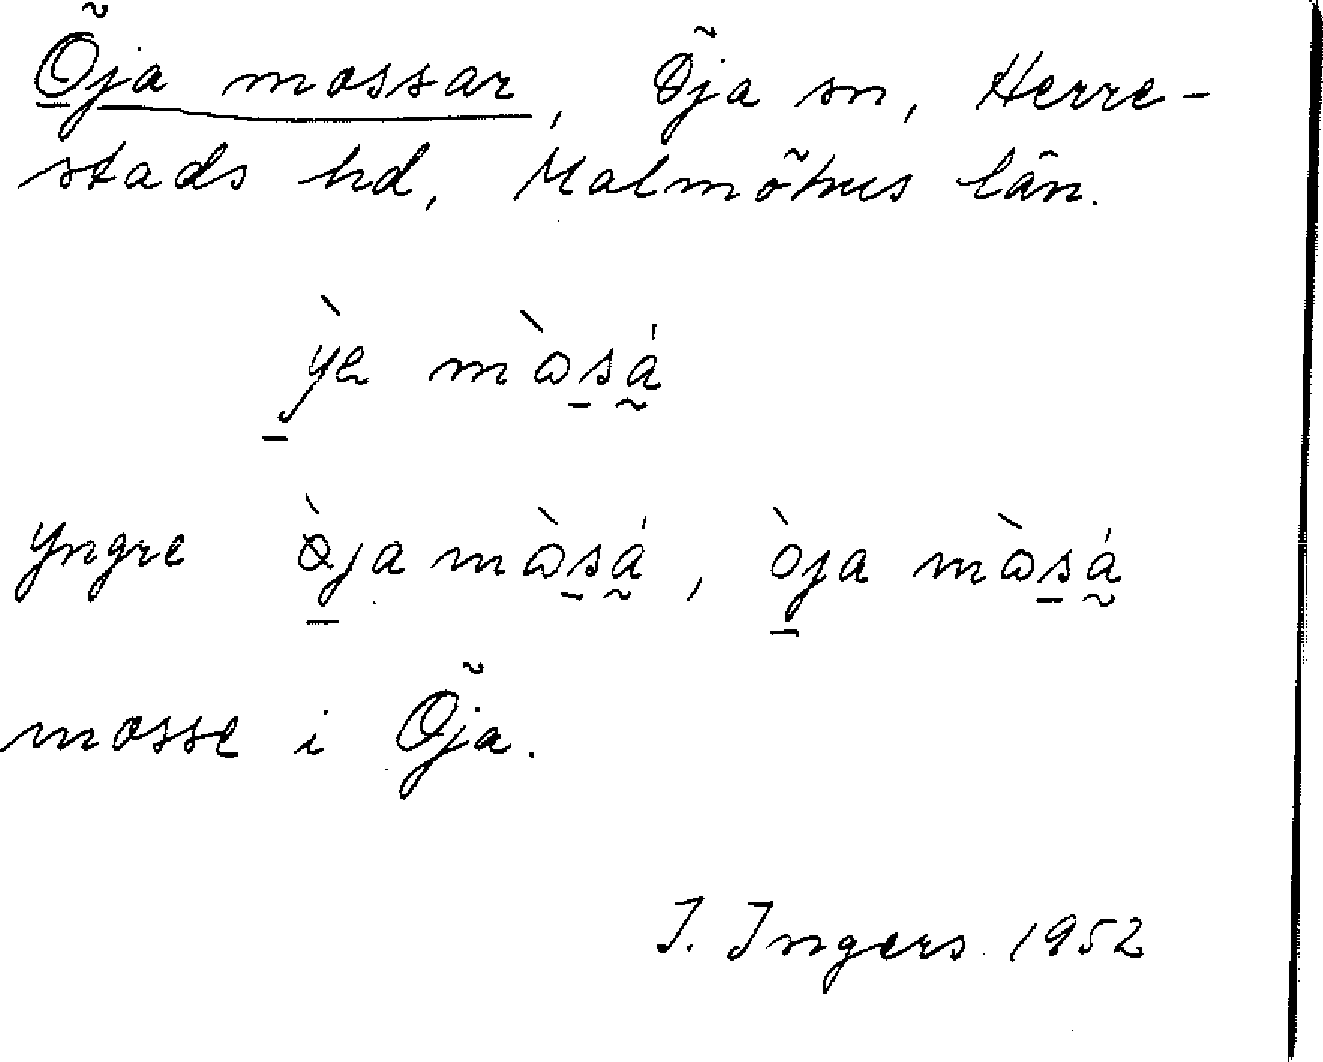 Öja mossar, Öja sn, Herre-
stads hd, Malmöhus län.
ỳe mò̀sá
Yngre ö̀ja mòsá, òja mòsá
mosse i Öja.
I. Ingers 1952